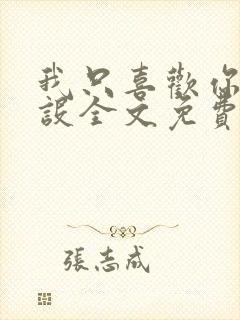 我只喜歡你
設全文免費
張志成